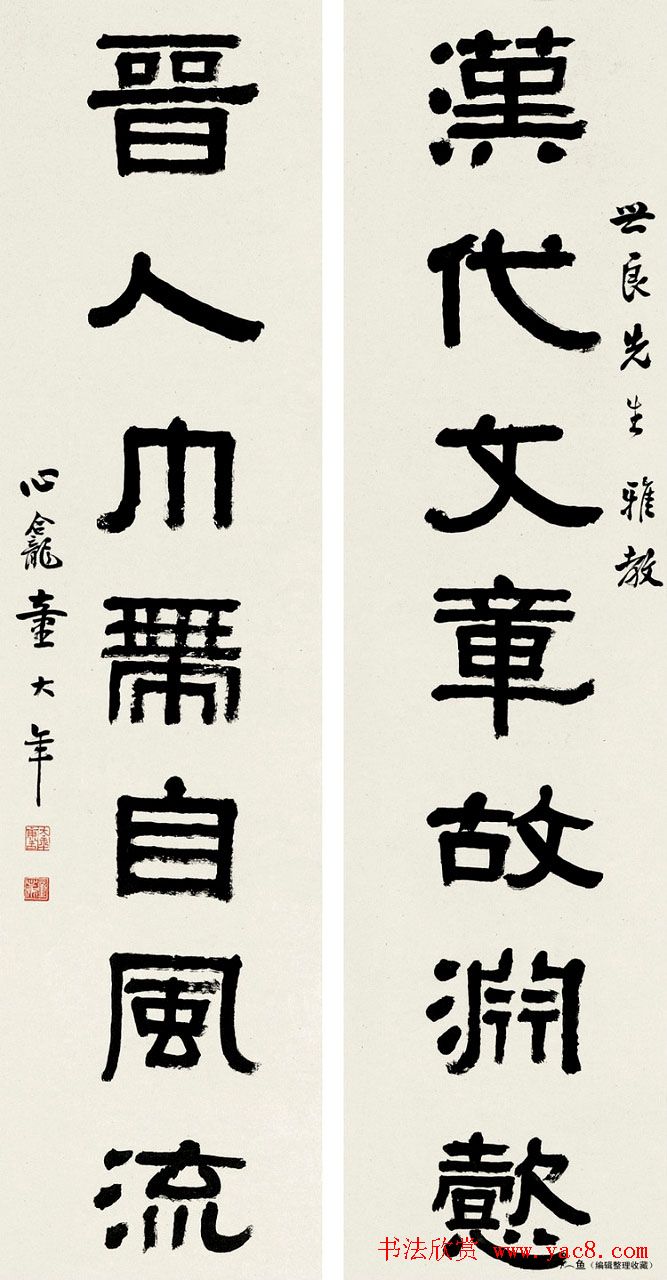 世良先生雅教
漢代文章故淵懿
晉人巾帶自風流
心龕童大年
书法欣赏 www.yac8.com
鱼（编辑整理收藏）